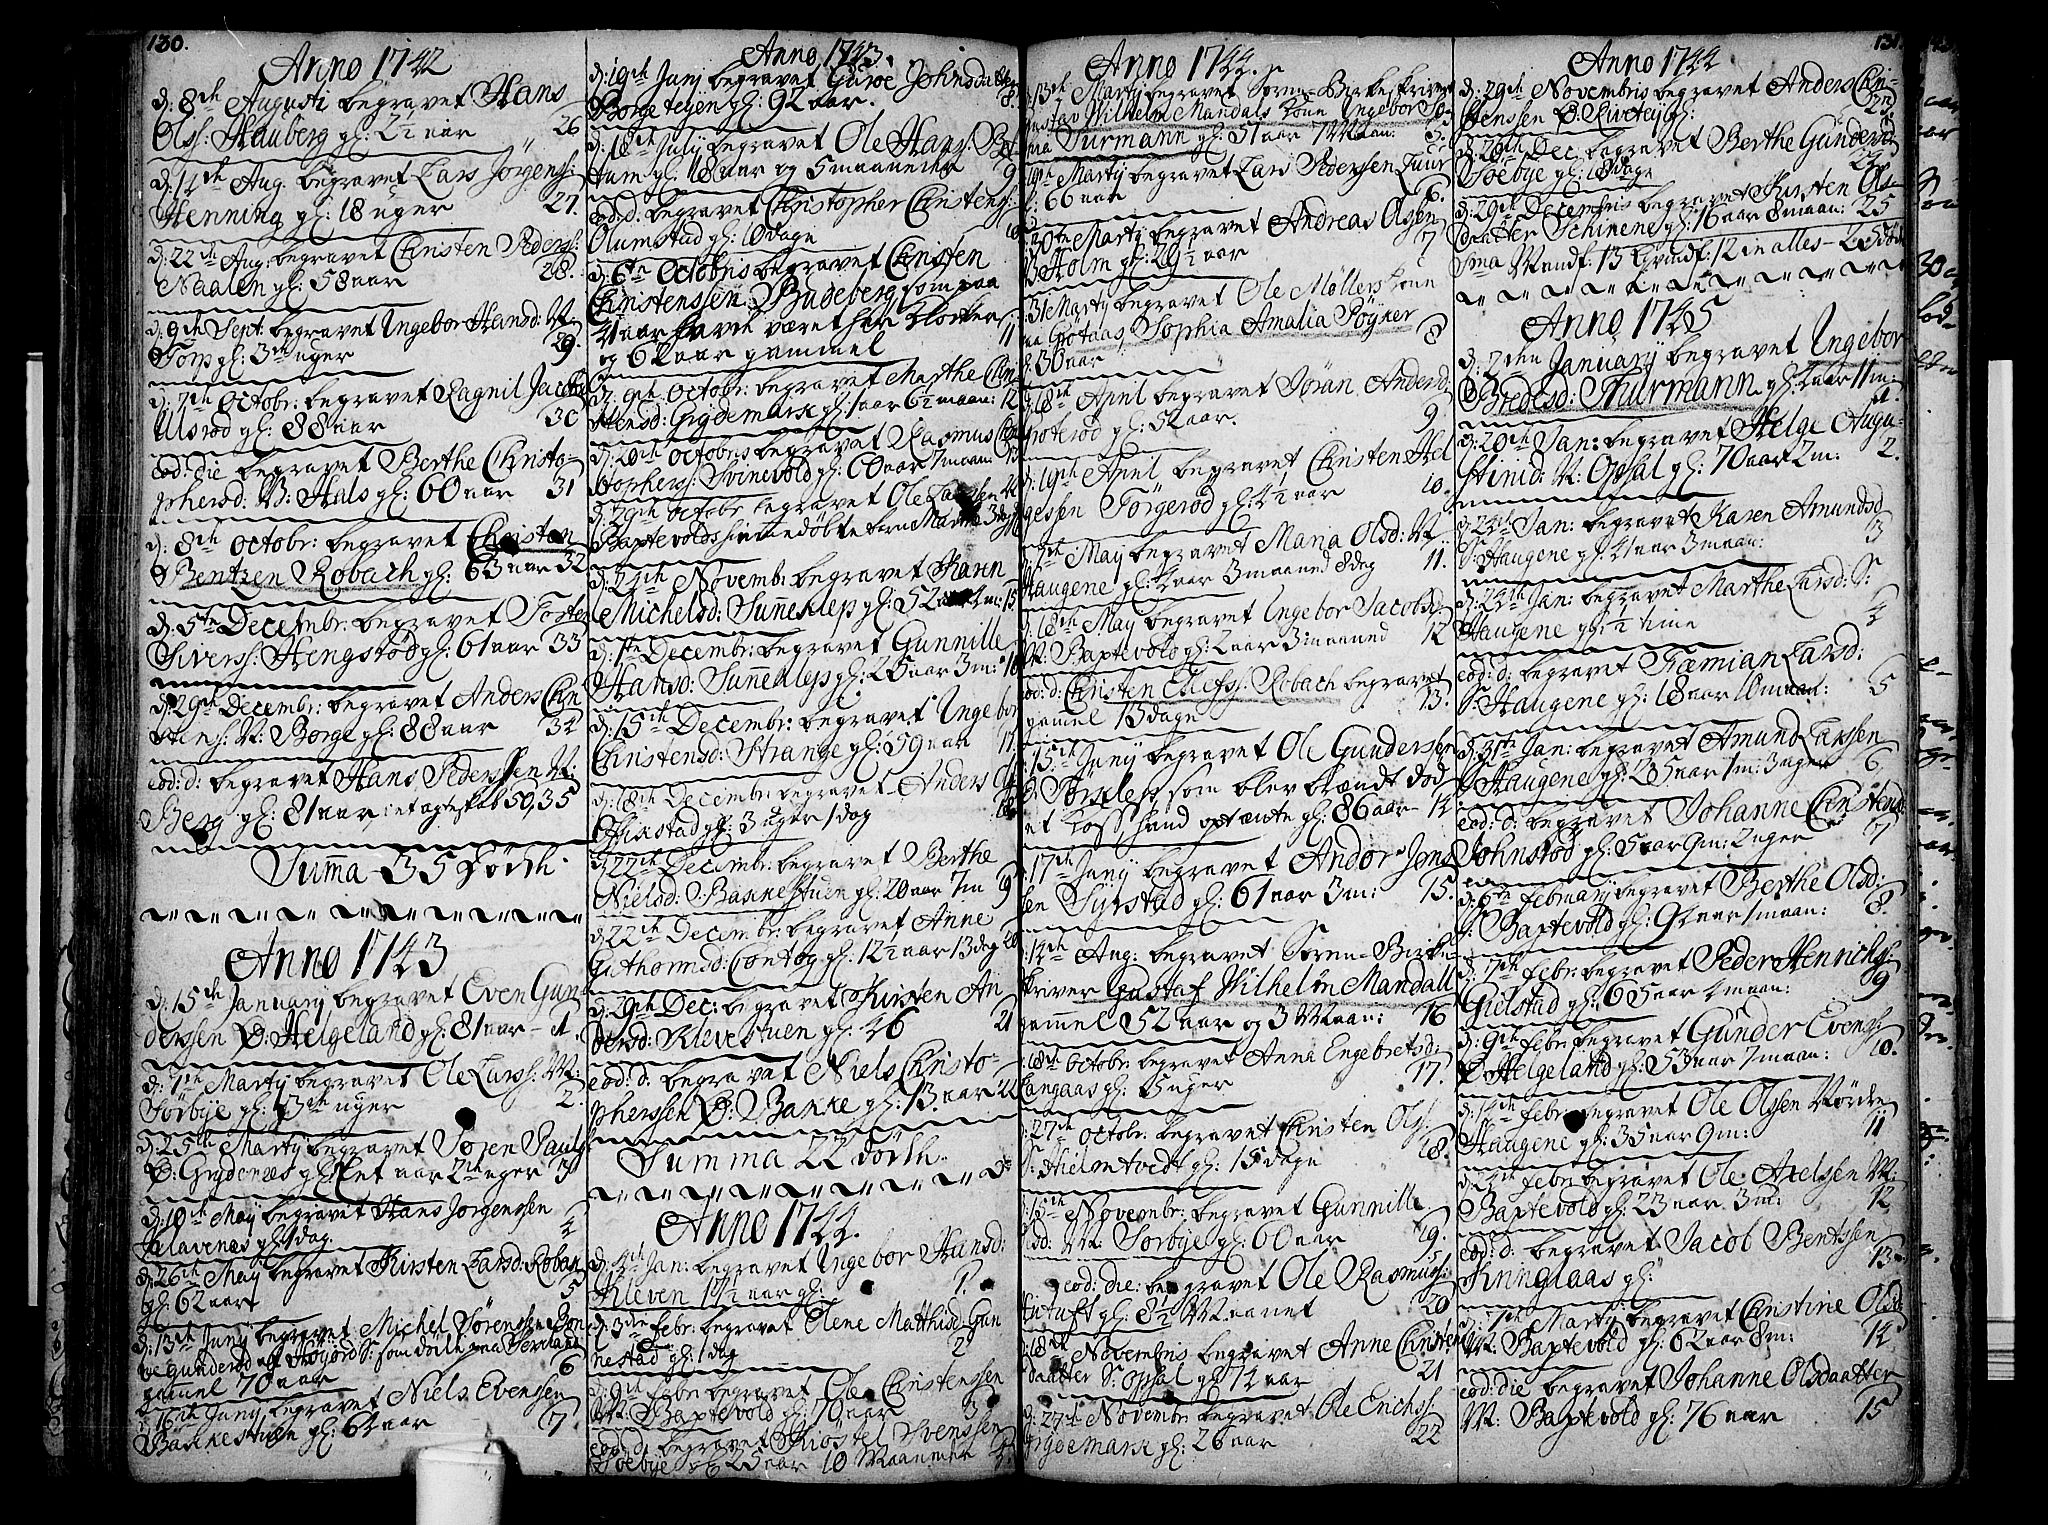 130.
Anno 1742
d: 8th Augusti begravet Hans
Olss: Hauberg gl: 2½ aar 26
d: 14th Aug. begravet Lars Jörgenss:
Henning gl: 18 uger 27.
d: 22th Aug: begravet Christen Pederss:
Naalen gl: 58 aar 28.
d: 9th Sept: begravet Ingebor Hansd: N:
Torp gl: 3 uger 29.
d: 7th Octobr: begravet Ragnil Jacobs
Ulsrød gl: 88 aar 30
eod: die begravet Berthe Christo-
phersd: N: Hals gl: 60 aar 31
d: 8th Octobr: begravet Christen
Bentzen Robach gl: 63 aar 32
d: 5te Decembr: begravet Tosten
Siverss: Hengstöd gl: 61 aar 33
d: 29th Decembr: begravet Anders Chri
stens: N: Borge gl: 88 aar 34
eod: d: begravet Hans Pederssen N:
Berg gl: 81 aar, i et ægteskab 50, 35
Suma 35 Döde
Anno 1743
d: 15th January begravet Even Gun
derssen Ø: Helgeland gl: 81 aar - 1.
d: 7th Marty begravet Ole Larss: N:
Sörbye gl: 13 uger 2.
d: 25th Marty begravet Sören Pauls
Ø: Grydenes gl: Et aar 2 uger 3
d: 10th May begravet Hans Jörgenssen
Salavenes gl: 1 dag. 4
d: 26th May begravet Kirsten Larsd: Roban
gl: 62 aar 5
d: 13th Juny begravet Michel Sörenssen Bon
de Gunderöd af som döde paa
gamel 70 aar 6
d: 16th Juny begravet Niels Evenssen
Bakkestuen gl: 64 aar 7.
Anno 1743.
d: 19th Juny begravet Guroe Johnsdatter
Borge teyen gl: 92 aar. 8.
d: 18th July begravet Ole Hans:
tum gl: 18 aar og 5 maaneder 9
eod: d: begravet Christopher Christenss:
Olumstad gl: 10 dage 10
d: 6th Octobris begravet Christen
Christenssen Budeberg som paa
41 aar havde været her Klocker 11
og 62 aar gammel
d: 9th Octobr: begravet Marthe Chri
stensd: Grydemark gl: 1 aar 6½ maan: 12
d: 20th Octobris begravet Rasmus Chri
stopherss: Svinevold gl: 60 aar 7 maan: 13
d: 29th Octobr begravet Ole Larssen
Baptevolds hiemedöbte barn 3 dage 14
d: 24th Novembr: begravet Karen
Michelsd: Sunneklep gl: 52 aar 2 m: 15
d: 1te Decembr: begravet Gunnille
Hansd: Sunneklep gl: 25 aar 3 m: 16
d: 15th Decembr: begravet Ingebor
Christensd: Strange gl: 59 aar 17
d: 18th Decembr: begravet Anders
Offikstad gl: 3 uger 1 dag 18
d: 22th Decembr: begravet Berthe
Nielsd: Bakkestuen gl: 20 aar 7 m 19
d: 22th Decembr: begravet Anne
Guthormsd: Contog gl: 12½ aar 13 dag 20
d: 29th Dec: begravet Kirsten An
dersd: Klevestuen gl: 46 21
eod: d: begravet Niels Christo-
pherssen Ø: Bakke gl: 13 aar 22
Summa 22 döde
Anno 1744.
d: 4th Jan: begravet Ingebor Hansd:
Kleven 17½ aar gl: 1.
d: 3die Febr: begravet Olene Matthisd: Gun
nestad gl: 1 dag 2
d: 9th Febr: begravet Ole Christenssen
N: Baptevold gl: 70 aar 3
eod: d: begravet Svenssen
Soebye gl: 25 aar 10 Maaneder 4
131.
Anno 1744.
13th Marty begravet Soren-Birkeskriver
Gustav Wilhelm Mandals kone Ingebor So-
Turmann gl: 51 aar 7 Maan: 5.
19th Marty begravet Lars Pedersen Tuur
gl: 66 aar 6.
30te Marty begravet Andreas Olssen
Holm gl: 29½ aar 7
31 Marty begravet Ole Møllers kone
paa Grötaas, Sophia Amalia Pöyker
gl: 30 aar 8
18th April begravet Jöran Andersd
Groteröd gl: 52 aar. 9
19th April begravet Christen Hel
gessen Törgeröd gl: 4½ aar 10.
7th May begravet Maria Olsd: N:
Haugene gl: 2 aar 3 maaned 8 dag 11.
18th May begravet Ingebor Jacobsd:
N: Baptevold gl: 2 aar 3 maaned 12
eod: d: Christen Ellefss: Robach begravet
gamel 13 dage 13.
15th Juny begravet Ole Gunderssen
som blev brændt död
et hand optænte gl: 86 aar - 14
17th Juny begravet Andor Jens
sen Syrstad gl: 61 aar 3 m: 15.
14th Aug: begravet Sören-Birke
skriver Gustaf Wilhelm Mandall
gamel 52 aar og 3 Maan: 16
18th Octobr: begravet Anna Engebretsd:
Langaas gl: 5 uger 17.
27th Octobr: begravet Christen Ols:
S: Hielmtvedt gl: 15 dage 18.
15th Novembr: begravet Gunnille
Olsd: N: Sörbye gl: 60 aar 19.
eod: die: begravet Ole Rasmuss:
Tuft gl: 8½ Maanet 20
18th Novembris begravet Anne Christens
daatter S: Opsal gl: 74 aar 21
d: 27th Novembr begravet Ole Erichs:
Grydemark gl: 26 aar 22
Anno 1744
d: 29th Novembris begravet Anders Chri-
stenssen Ø: gl: 23
d: 29th Dec begravet Berthe Gundersd
Soebye gl: 18 dage 24
d: 29th Decembris begravet Kirsten Ols-
daatter Schinene gl: 16 aar 8 maan: 25
Sma Mandk: 13 Qvindk: 12 in alles - 25 döde
Anno 1745
d: 2den January begravet Ingebor
Bredesd: Thurmann gl: 4 aar 11 m: 1.
d: 20th Jan: begravet Helge Augu-
stinid: N: Opsal gl: 70 aar 2 m: 2.
d: 24th Jan: begravet Karen Amundsd
S: Haugene gl: 41 aar 3 maan: 3
d: 24th Jan: begravet Marthe Larsd: S:
Haugene gl: ½ time 4
eod: d: begravet Fæmian Larsd:
S: Haugene gl: 18 aar 10 maan: 5
d: 31th Jan: begravet Amund Larssen
S: Haugene gl: 25 aar 1 m: 3 uger 6
eod: d: begravet Johanne Christensd
Johnstöd gl: 5 aar 9 m: 2 uger 7
d: 6th February begravet Berthe Olsd:
S: Baptevold gl: 94 aar 1 maan: 8.
d: 7th Febr: begravet Peder Henrichs:
Gielstad gl: 65 aar 4 maan: 9
d: 9th Febr: begravet Gunder Evenss:
Ø Helgeland gl: 53 aar 7 maan: 10.
d: 14th Febr: begravet Ole Olssen Nordre
Haugene gl: 35 aar 9 m: 11
d: 24th Febr: begravet Ole Axelssen N:
Baptevold gl: 23 aar 3 m: 12
eod: d: begravet Jacob Bentssen
Finnglaas gl: 13
d: 7th Marty begravet Christine Olsd:
N: Baptevold gl: 62 aar 8 m: 14
eod: die begravet Johanne Olsdaatter
N: Baptevold gl: 76 aar 15